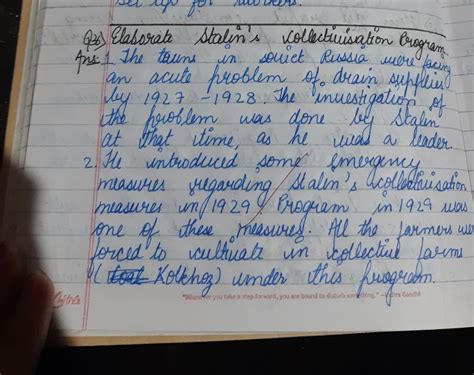 set up for workers.
Q8) Elaborate Stalin's Collectivisation Program.
Ans. 1. The towns in soviet Russia were facing
an acute problem of drain supplies
by 1927 - 1928. The investigation of
the problem was done by Stalin
at that time, as he was a leader.
2. He introduced some emergency
measures regarding Stalin's collectivisation
measures in 1929 Program in 1929 was
one of these measures. All the farmers were
forced to cultivate in collective farms
(Kolkhoz) under this program.
"Whenever you take a step forward, you are bound to disturb something." - Indira Gandhi